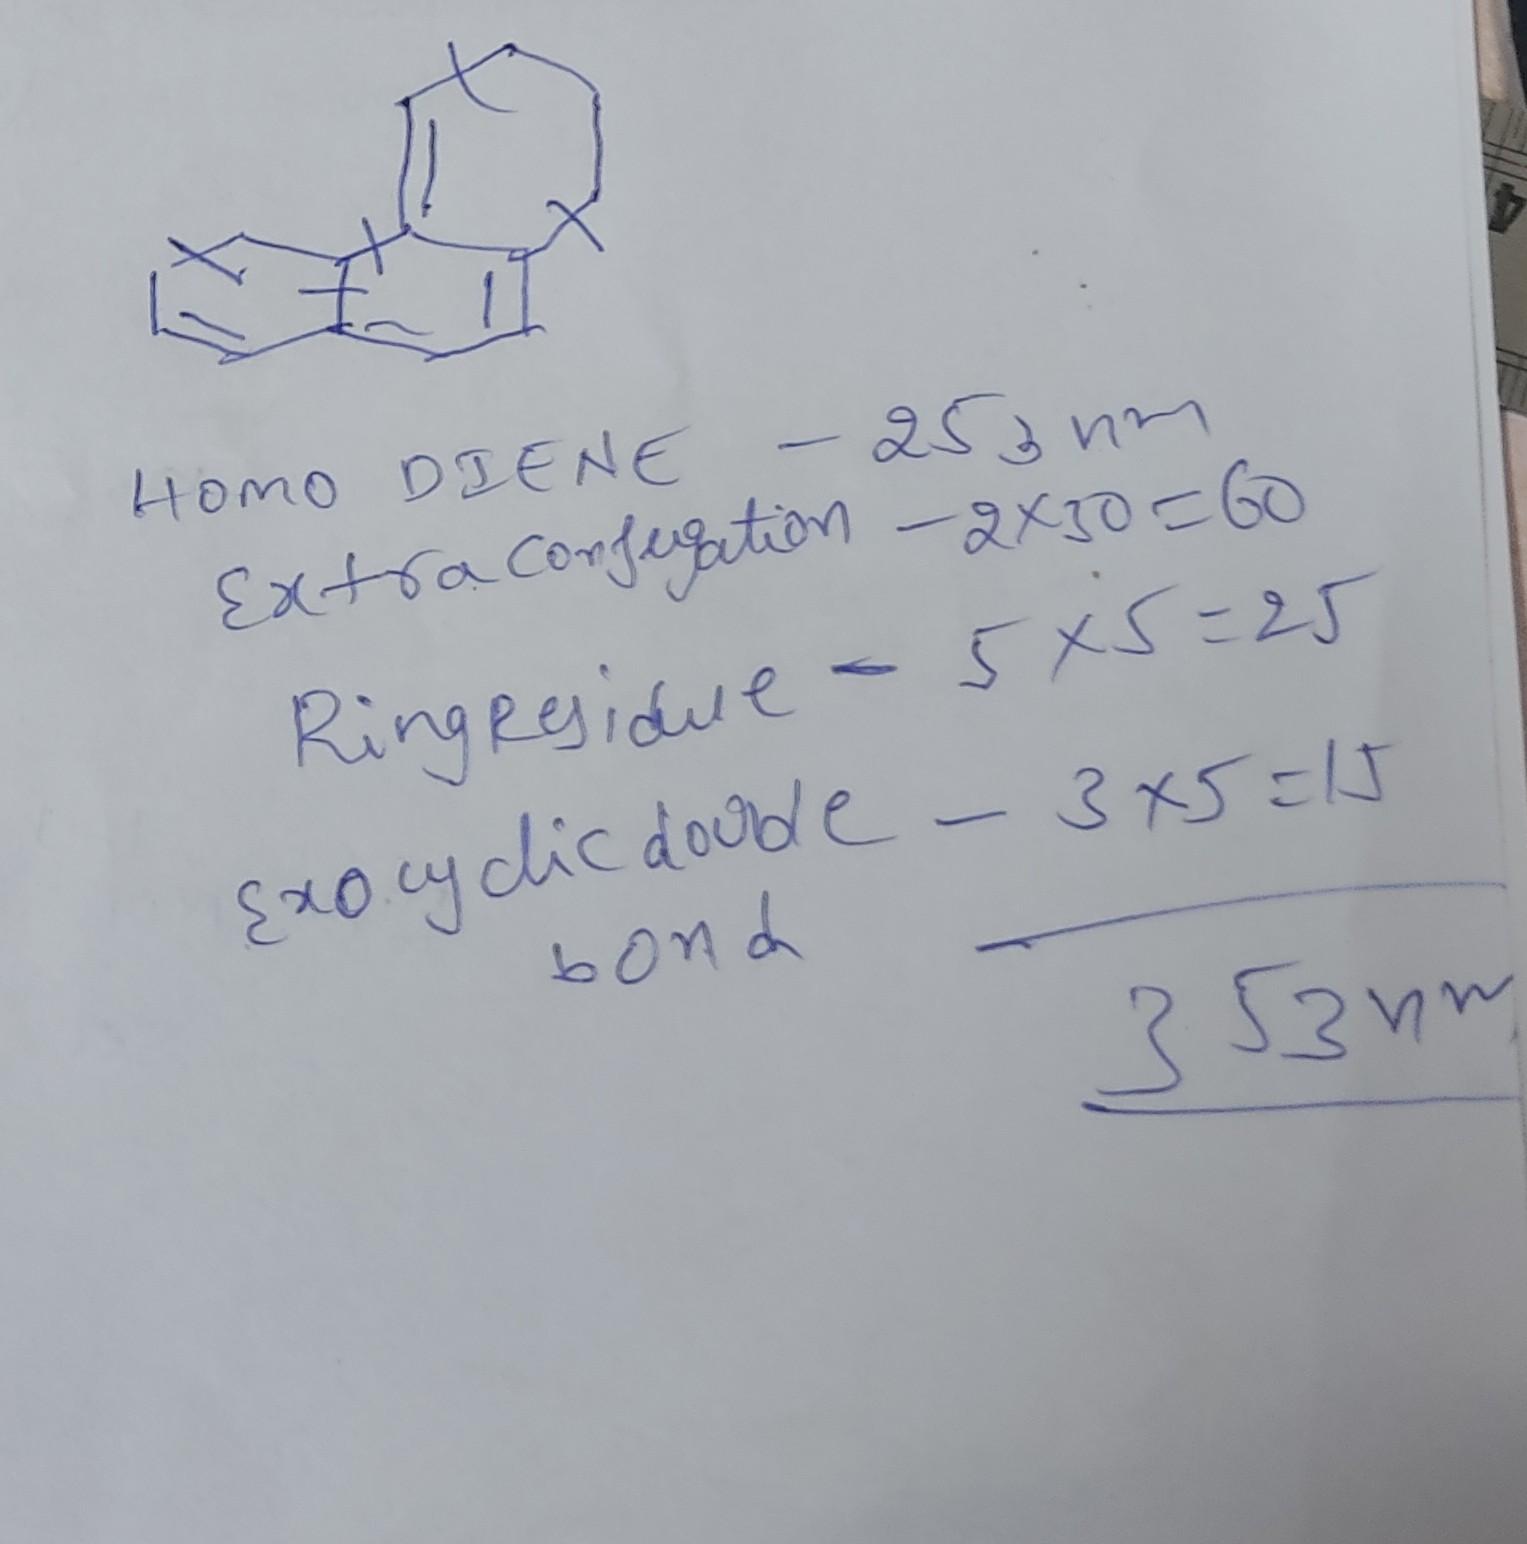 HOMO DIENE - 253 nm
Extra Conjugation - 2x30 = 60
Ring Residue - 5 x5 = 25
Exo cyclic double - 3 x5 = 15
bond
353 nm